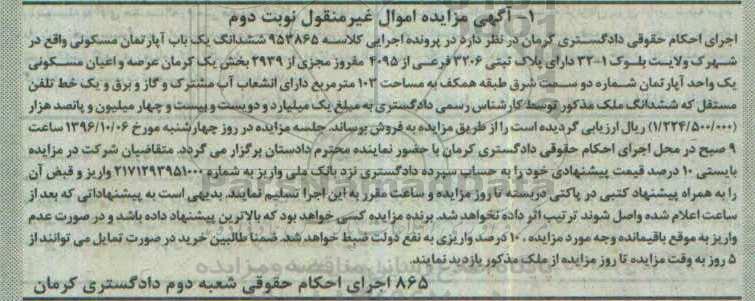 ۱- آگهی مزایده اموال غیرمنقول نوبت دوم
اجرای احکام حقوقی دادگستری کرمان در نظر دارد در پرونده اجرایی کلاسه ۹۵۳۸۶۵ ششدانگ یک باب آپارتمان مسکونی واقع در
شهرک ولایت بلوک ۱-۳۲ دارای پلاک ثبتی ۳۲۰۶ فرعی از ۴۰۹۵ مفروز مجزی از ۲۹۳۹ بخش یک کرمان عرصه و اعیان مسکونی
یک واحد آپارتمان شماره دو سمت شرق طبقه همکف به مساحت ۱۰۳ مترمربع دارای انشعاب آب مشترک و گاز و برق و یک خط تلفن
مستقل که ششدانگ ملک مذکور توسط کارشناس رسمی دادگستری به مبلغ یک میلیارد و دویست و بیست و چهار میلیون و پانصد هزار
(۱/۲۲۴/۵۰۰/۰۰۰) ریال ارزیابی گردیده است را از طریق مزایده به فروش برساند. جلسه مزایده در روز چهارشنبه مورخ ۱۳۹۶/۱۰/۰۶ ساعت
۹ صبح در محل اجرای احکام حقوقی دادگستری کرمان با حضور نماینده محترم دادستان برگزار می گردد. متقاضیان شرکت در مزایده
بایستی ۱۰ درصد قیمت پیشنهادی خود را به حساب سپرده دادگستری نزد بانک ملی واریز به شماره ۲۱۷۱۲۹۳۹۵۱۰۰۰ واریز و قبض آن
را به همراه پیشنهاد کتبی در پاکتی دربسته تا روز مزایده و ساعت مقرر به این اجرا تسلیم نمایند. بدیهی است به پیشنهاداتی که بعد از
ساعت اعلام شده واصل شوند ترتیب اثر داده نخواهد شد. برنده مزایده کسی خواهد بود که بالاترین پیشنهاد داده باشد و در صورت عدم
واریز به موقع باقیمانده وجه مورد مزایده ، ۱۰ درصد واریزی به نفع دولت ضبط خواهد شد. ضمنا طالبین خرید در صورت تمایل می توانند از
۵ روز به وقت مزایده تا روز مزایده از ملک مذکور بازدید نمایند.
۸۶۵ اجرای احکام حقوقی شعبه دوم دادگستری کرمان